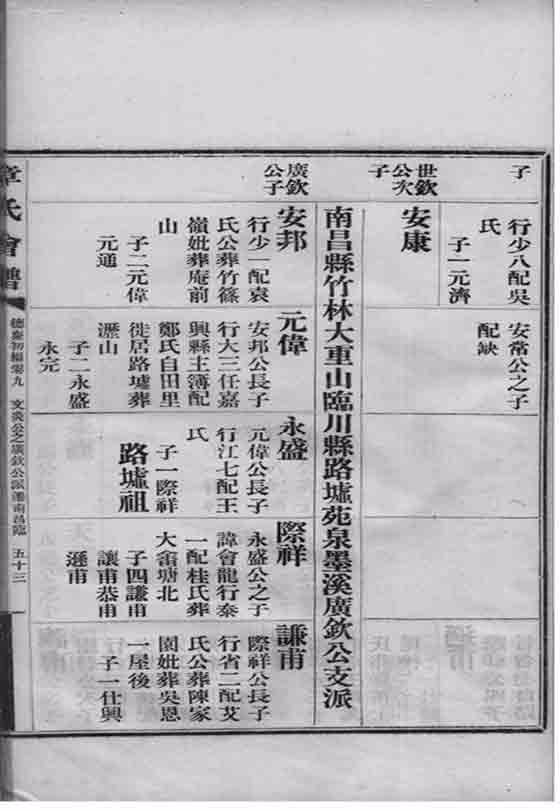 子
行少八配吳
氏
子一元濟
安常公之子
配缺
世欽
公次
子
安康
南昌縣竹林大重山臨川縣路墟苑泉墨溪廣欽公支派
廣欽
公子
安邦
行少一配袁
氏公葬竹篠
嶺妣葬庵前
山
子二元偉
元通
元偉
安邦公長子
行大三任嘉
興縣主簿配
鄭氏自田里
徙居路墟葬
瀝山
子二永盛
永完
永盛
元偉公長子
行江七配王
氏
子一際祥
路墟祖
際祥
永盛公之子
諱會龍行泰
一配桂氏葬
大畬塘北
子四謙甫
讓甫恭甫
遜甫
謙甫
際祥公長子
行省二配艾
氏公葬陳家
園妣葬吳恩
一屋後
子一仕興
章氏會譜
德慶初編卷九
文炎公之廣欽公派遷南昌臨
五十三